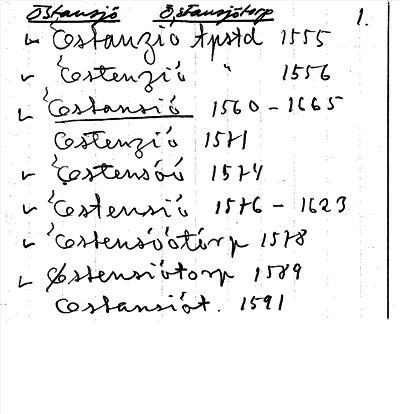 Östansjö Östansjötorp 1.
✓ Östanziö tpstd 1555
✓ Östenziö " 1556
✓ Östansiö 1560-1665
Östenziö 1571
✓ Östensöö 1574
✓ Östensiö 1576-1623
✓ Östensöötörp 1578
✓ Östensiötorp 1589
Östansiöt. 1591